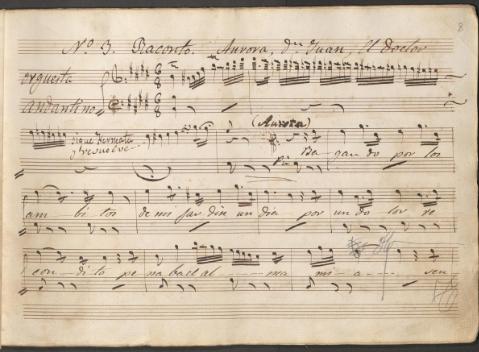 8
Nº 3. Raconto. Aurora, Dn. Juan, El Doctor
orquesta
andantino
(Aurora)
Sigue
y resuelve
Ba-gan-do por los
am-bi-tos de mi jardin un dia por un do-lor re
con-di-to pe na ba el al---ma mi-a---- sen